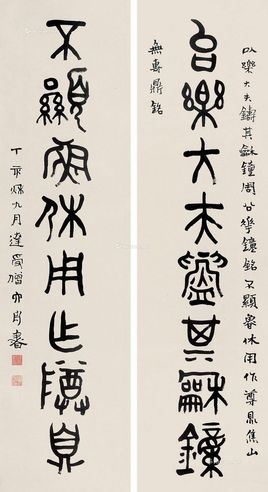 以樂大夫鑄其龢鐘周公華鐘銘不顯魯休用作尊鼎焦山
台樂大夫鑄其龢鐘
無專鼎銘
不顯魯休用乍尊鼎
丁亥秌九月達受僧六舟書